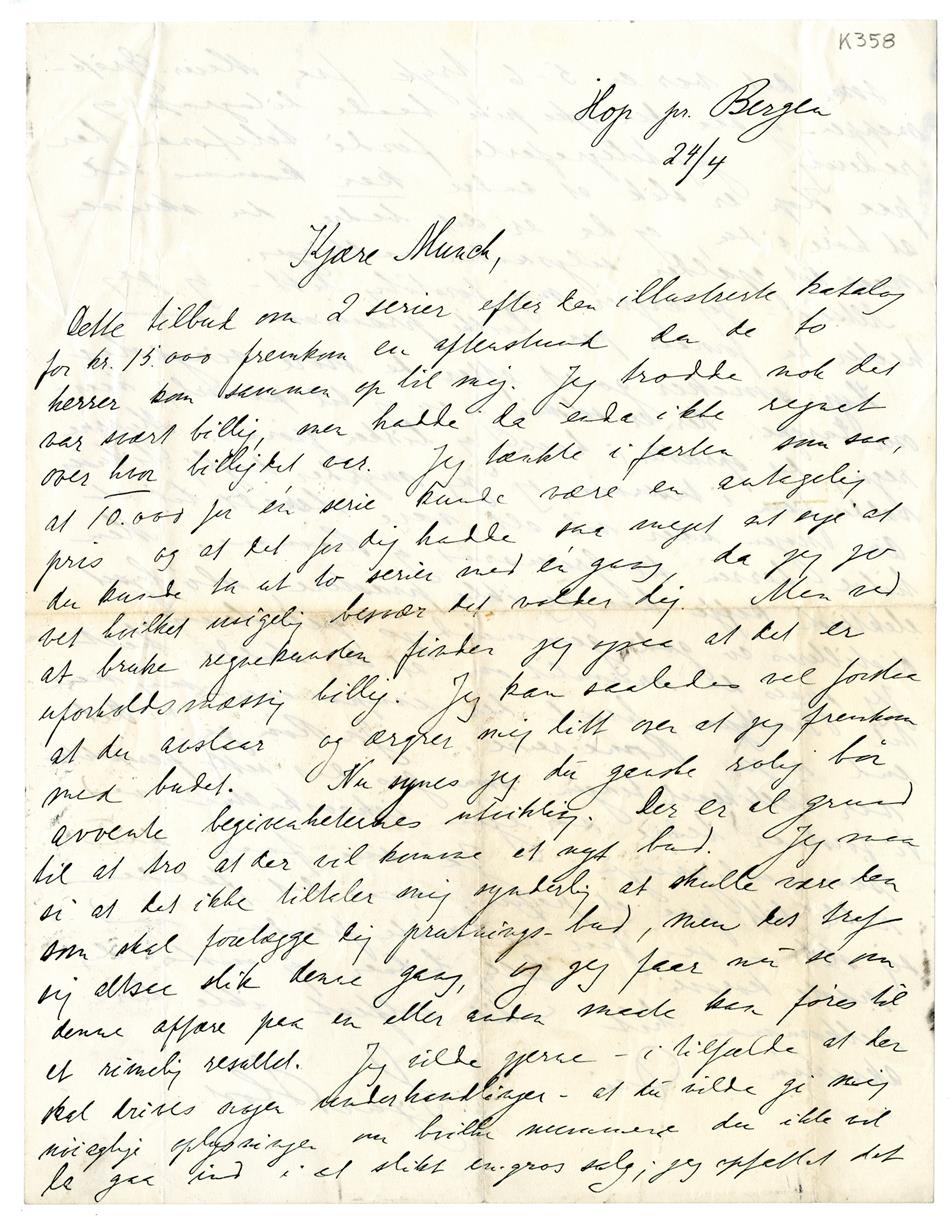 K358
Hop pr. Bergen
24/4
Kjære Munch,
Dette tilbud om 2 serier efter den illustrerte katalog
for kr. 15.000 fremkom en aftenstund da de to
herrer kom sammen op til mig. Jeg trodde nok det
var svært billig, men hadde da enda ikke regnet
over hvor billig det var. Jeg tænkte i farten som saa,
at 10.000 for én serie kunde være en antagelig
pris og at det for dig hadde saa meget at si at
du kunde ta ut to serier med én gang, da jeg jo
vet hvilket usigelig besvær det volder dig. Men ved
at bruke regnekunsten finder jeg ogsaa at det er
uforholdsmæssig billig. Jeg kan saaledes vel forstaa
at du avslaar og ærgrer mig litt over at jeg fremkom
med budet. Nu synes jeg du ganske rolig bør
avvente begivenheternes utvikling. Der er al grund
til at tro at der vil komme et nyt bud. Jeg maa
si at det ikke tiltaler mig synderlig at skulle være den
som skal forelægge dig prutnings-bud, men det traf
sig altsaa slik denne gang, og jeg faar nu se om
denne affære paa en eller anden maate kan føres til
et rimelig resultat. Jeg vilde gjerne – i tilfælde at der
skal drives nogen underhandlinger – at du vilde gi mig
nøiagtige oplysninger om hvilke nummere du ikke vil
la gaa ind i et slikt en-gros salg; jeg opfattet det